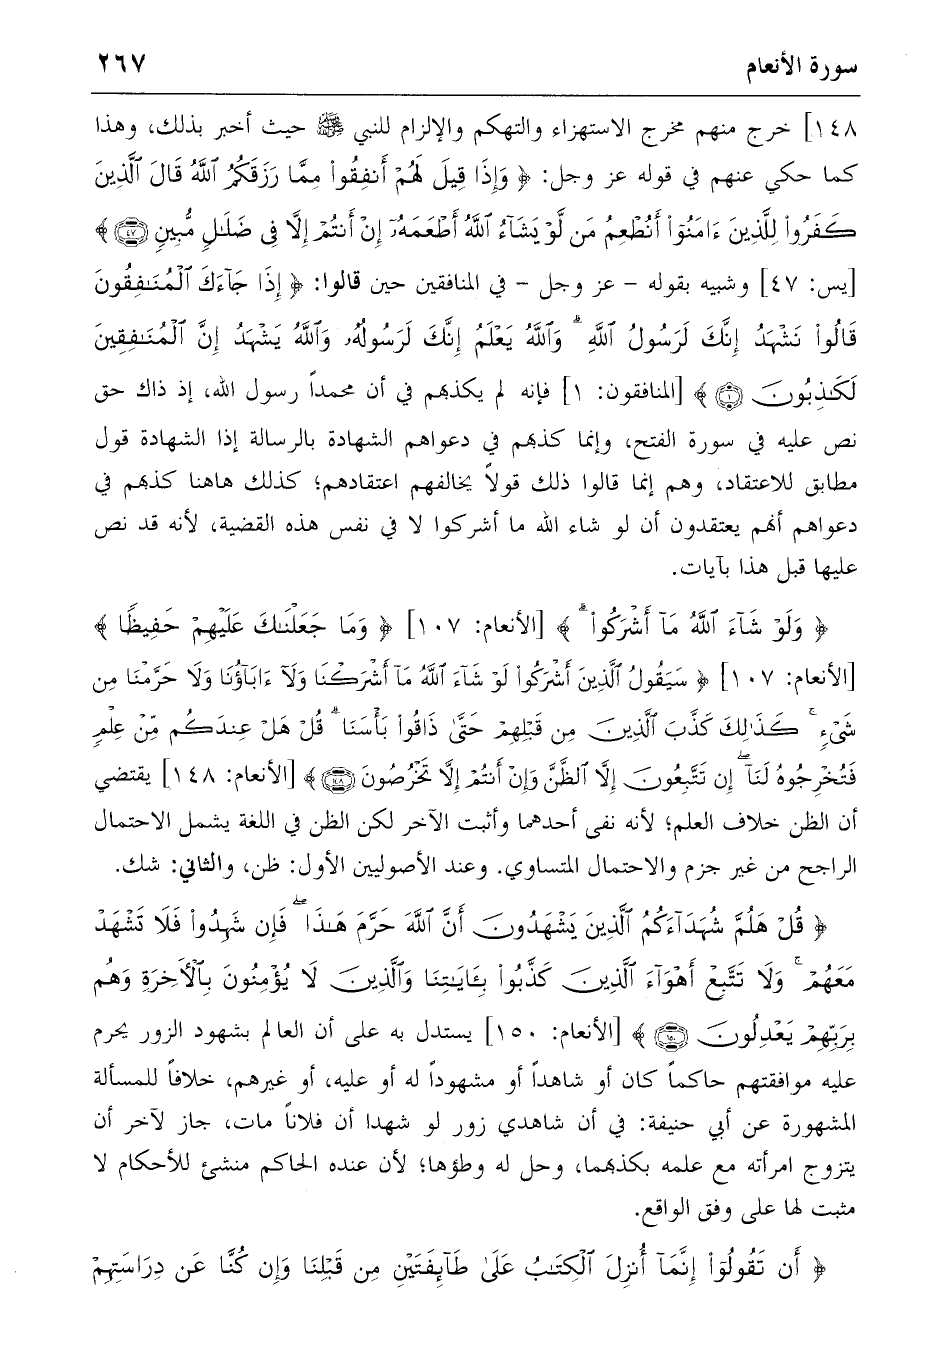 سورة الأنعام ٢٦٧
١٤٨] خرج منهم مخرج الاستهزاء والتهكم والإلزام للنبي ﷺ حيث أخبر بذلك، وهذا
كما حكي عنهم في قوله عز وجل: ﴿ وَإِذَا قِيلَ لَهُمْ أَنفِقُوا۟ مِمَّا رَزَقَكُمُ ٱللَّهُ قَالَ ٱلَّذِينَ
كَفَرُوا۟ لِلَّذِينَ ءَامَنُوٓا۟ أَنُطْعِمُ مَن لَّوْ يَشَآءُ ٱللَّهُ أَطْعَمَهُۥٓ إِنْ أَنتُمْ إِلَّا فِى ضَلَـٰلٍ مُّبِينٍ ٤٧ ﴾
[يس: ٤٧] وشبيه بقوله - عز وجل - في المنافقين حين قالوا: ﴿ إِذَا جَآءَكَ ٱلْمُنَـٰفِقُونَ
قَالُوا۟ نَشْهَدُ إِنَّكَ لَرَسُولُ ٱللَّهِ ۗ وَٱللَّهُ يَعْلَمُ إِنَّكَ لَرَسُولُهُۥ وَٱللَّهُ يَشْهَدُ إِنَّ ٱلْمُنَـٰفِقِينَ
لَكَـٰذِبُونَ ١ ﴾ [المنافقون: ١] فإنه لم يكذبهم في أن محمداً رسول الله، إذ ذاك حق
نص عليه في سورة الفتح، وإنما كذبهم في دعواهم الشهادة بالرسالة إذا الشهادة قول
مطابق للاعتقاد، وهم إنما قالوا ذلك قولاً يخالفهم اعتقادهم؛ كذلك هاهنا كذبهم في
دعواهم أنهم يعتقدون أن لو شاء الله ما أشركوا لا في نفس هذه القضية، لأنه قد نص
عليها قبل هذا بآيات.
﴿ وَلَوْ شَآءَ ٱللَّهُ مَآ أَشْرَكُوا۟ ۗ ﴾ [الأنعام: ١٠٧] ﴿ وَمَا جَعَلْنَـٰكَ عَلَيْهِمْ حَفِيظًا ﴾
[الأنعام: ١٠٧] ﴿ سَيَقُولُ ٱلَّذِينَ أَشْرَكُوا۟ لَوْ شَآءَ ٱللَّهُ مَآ أَشْرَكْنَا وَلَآ ءَابَآؤُنَا وَلَا حَرَّمْنَا مِن
شَىْءٍ ۚ كَذَٰلِكَ كَذَّبَ ٱلَّذِينَ مِن قَبْلِهِمْ حَتَّىٰ ذَاقُوا۟ بَأْسَنَا ۗ قُلْ هَلْ عِندَكُم مِّنْ عِلْمٍ
فَتُخْرِجُوهُ لَنَآ ۖ إِن تَتَّبِعُونَ إِلَّا ٱلظَّنَّ وَإِنْ أَنتُمْ إِلَّا تَخْرُصُونَ ١٤٨ ﴾ [الأنعام: ١٤٨] يقتضي
أن الظن خلاف العلم؛ لأنه نفى أحدهما وأثبت الآخر لكن الظن في اللغة يشمل الاحتمال
الراجح من غير جزم والاحتمال المتساوي. وعند الأصوليين الأول: ظن، والثاني: شك.
﴿ قُلْ هَلُمَّ شُهَدَآءَكُمُ ٱلَّذِينَ يَشْهَدُونَ أَنَّ ٱللَّهَ حَرَّمَ هَـٰذَا ۖ فَإِن شَهِدُوا۟ فَلَا تَشْهَدْ
مَعَهُمْ ۚ وَلَا تَتَّبِعْ أَهْوَآءَ ٱلَّذِينَ كَذَّبُوا۟ بِـَٔايَـٰتِنَا وَٱلَّذِينَ لَا يُؤْمِنُونَ بِٱلْـَٔاخِرَةِ وَهُم
بِرَبِّهِمْ يَعْدِلُونَ ١٥٠ ﴾ [الأنعام: ١٥٠] يستدل به على أن العالم بشهود الزور يحرم
عليه موافقتهم حاكماً كان أو شاهداً أو مشهوداً له أو عليه، أو غيرهم، خلافاً للمسألة
المشهورة عن أبي حنيفة: في أن شاهدي زور لو شهدا أن فلاناً مات، جاز لآخر أن
يتزوج امرأته مع علمه بكذبهما، وحل له وطؤها؛ لأن عنده الحاكم منشئ للأحكام لا
مثبت لها على وفق الواقع.
﴿ أَن تَقُولُوٓا۟ إِنَّمَآ أُنزِلَ ٱلْكِتَـٰبُ عَلَىٰ طَآئِفَتَيْنِ مِن قَبْلِنَا وَإِن كُنَّا عَن دِرَاسَتِهِمْ